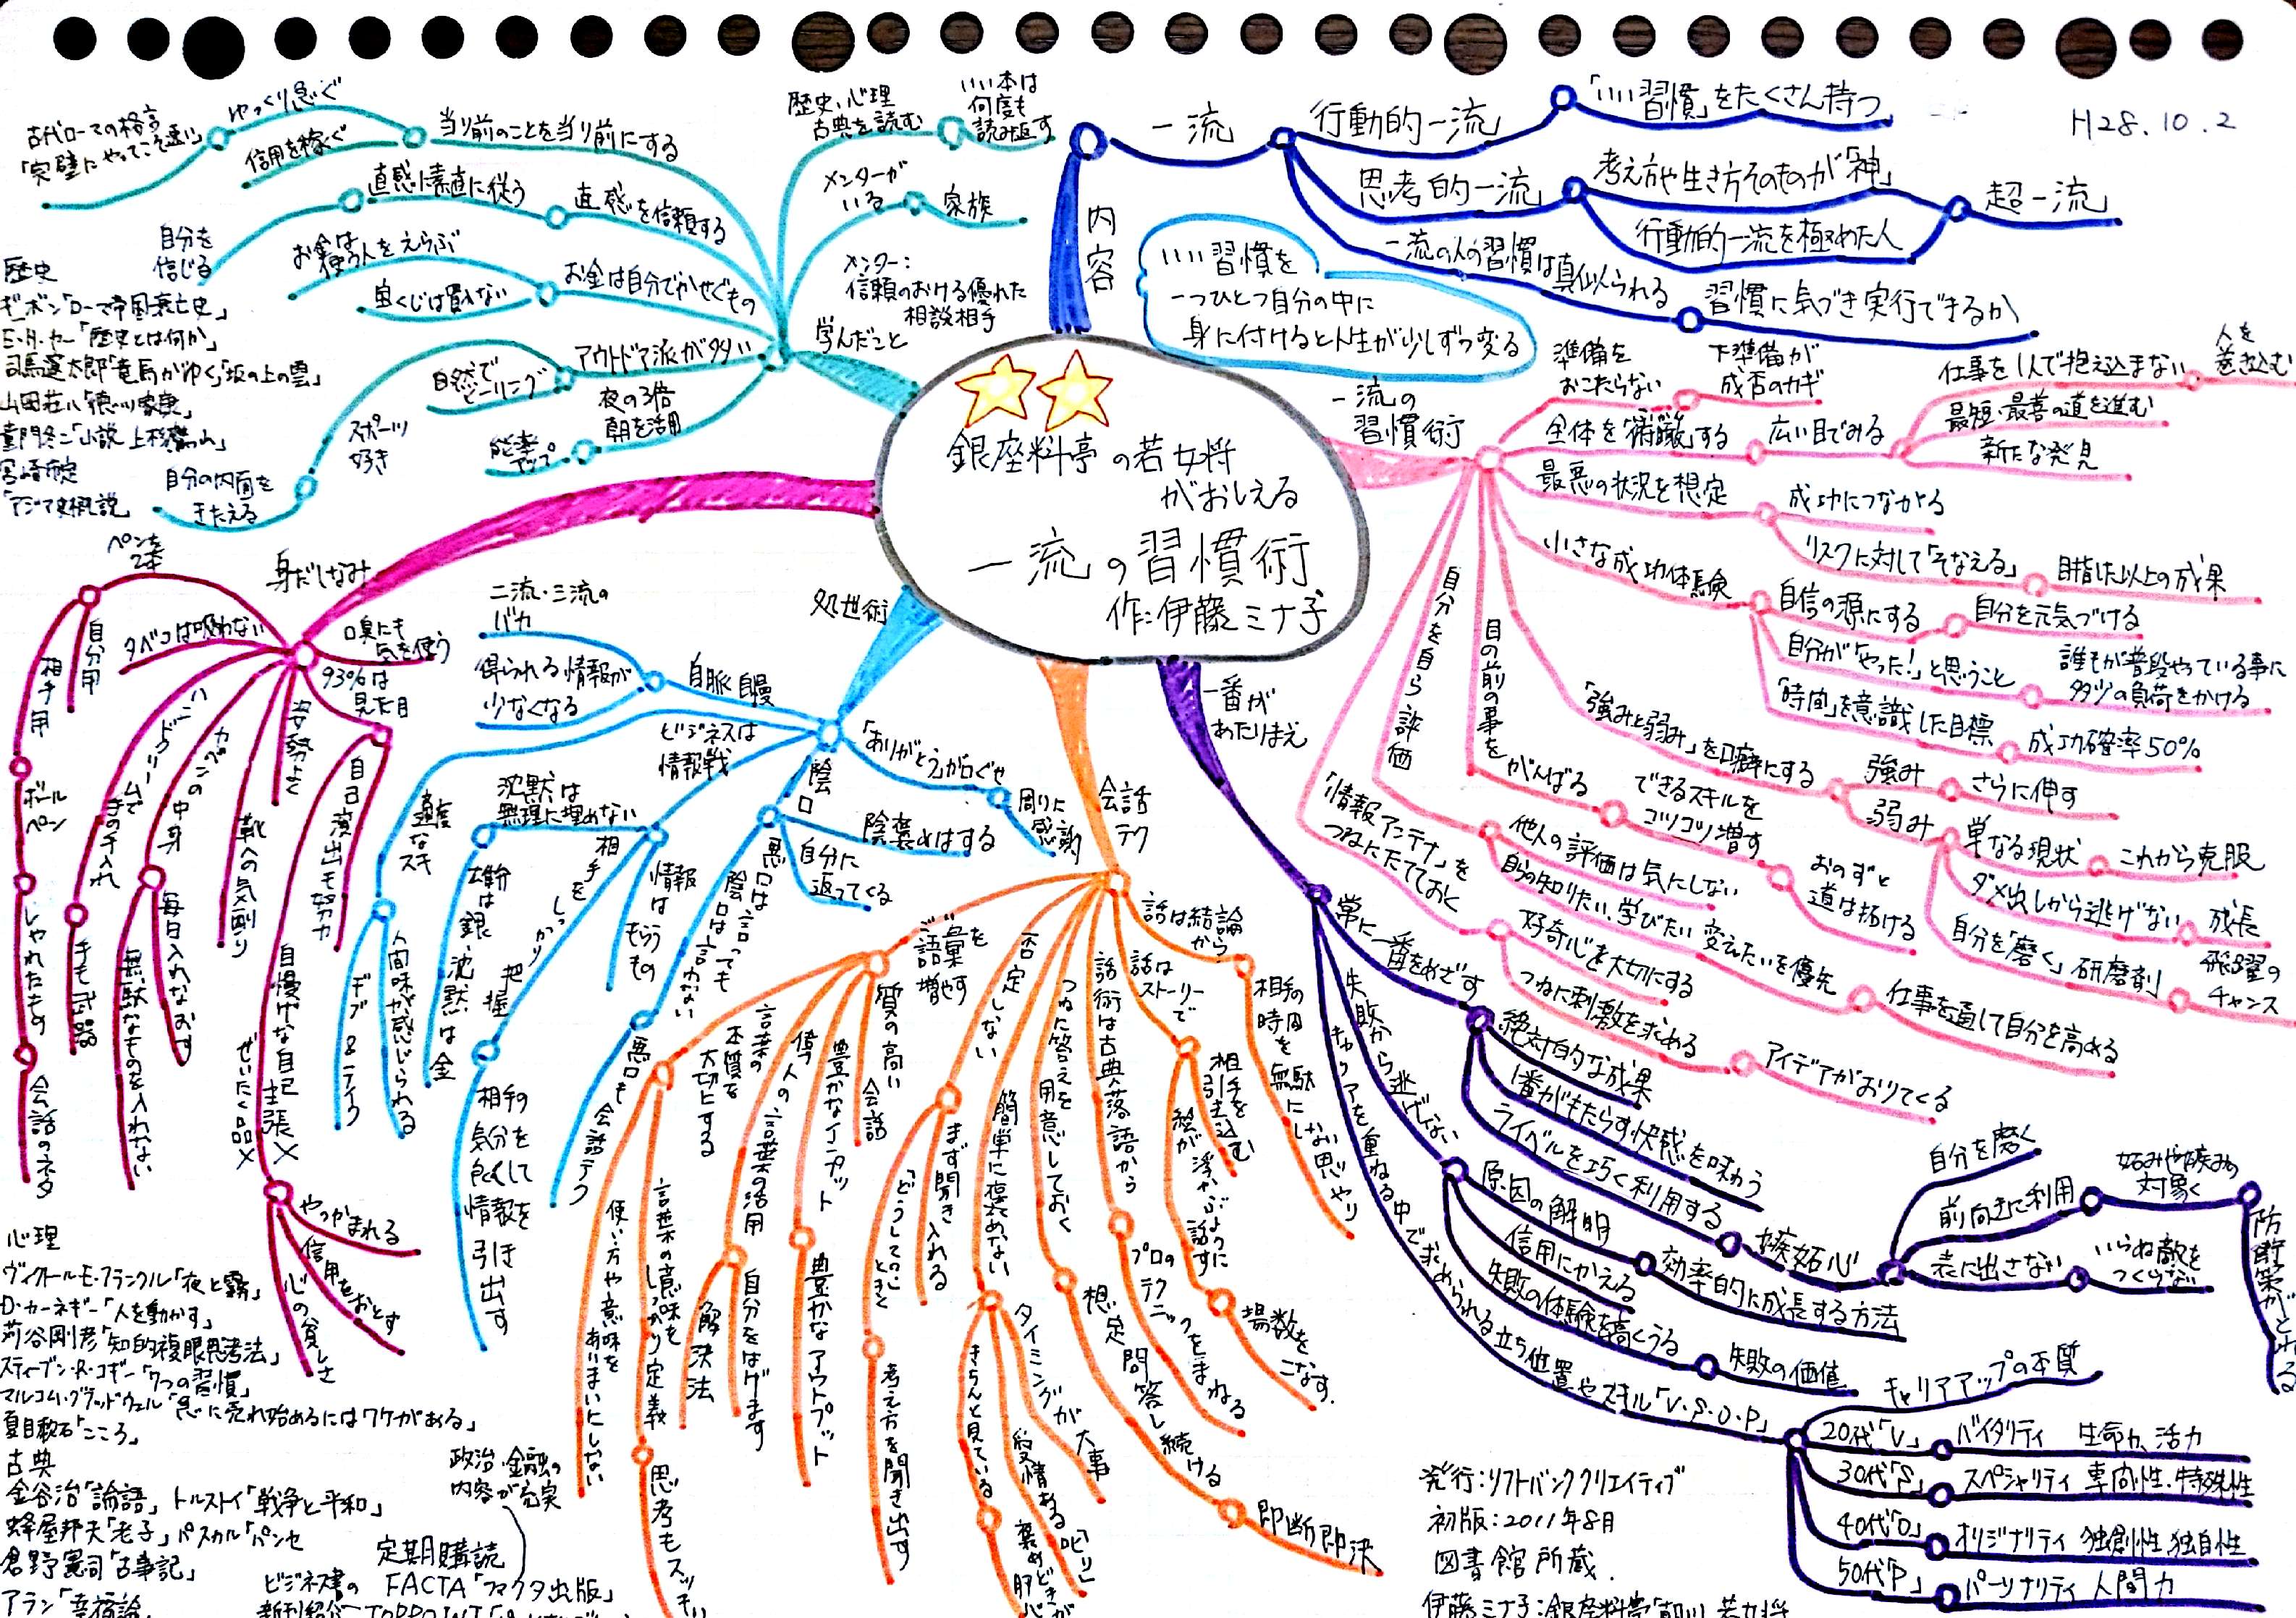 H28.10.2
銀座料亭の若女将
がおしえる
一流の習慣術
作:伊藤ミナ子
内容
一流
行動的一流
「いい習慣」をたくさん持つ
思考的一流
考え方や生き方そのものが「神」
行動的一流を極めた人
超一流
一流の人の習慣は真似られる
習慣に気づき実行できるか
いい習慣を
一つひとつ自分の中に
身に付けると人生が少しずつ変る
一流の
習慣術
準備を
おこたらない
下準備が
成否のカギ
全体を「俯瞰」する
広い目でみる
仕事を1人で抱え込まない
人を
巻き込む
最短・最善の道を進む
新たな発見
最悪の状況を想定
成功につながる
リスクに対して「そなえる」
目指した以上の成果
小さな成功体験
自信の源にする
自分を元気づける
自分が「やった!」と思うこと
誰もが普段やっている事に
多少の負荷をかける
「時間」を意識した目標
成功確率50%
「強みと弱み」を口癖にする
強み
さらに伸す
弱み
単なる現状
これから克服
ダメ出しから逃げない
成長
自分を「磨く」研磨剤
飛躍の
チャンス
目の前の事を
がんばる
できるスキルを
コツコツ増す
おのずと
道は拓ける
自分を自ら評価
他人の評価は気にしない
自らの知りたい、学びたい、変えたいを優先
仕事を通して自分を高める
「情報アンテナ」を
つねにたてておく
好奇心を大切にする
つねに刺激を求める
アイデアがおりてくる
一番が
あたりまえ
常に一番をめざす
絶対的な成果
1番がもたらす快感を味わう
ライバルを巧く利用する
嫉妬心
自分を磨く
前向きに利用
妬みや嫉みの
対象く
防御策がとれる
表に出さない
いらぬ敵を
つくらない
失敗から逃げない
原因の解明
信用にかえる
効率的に成長する方法
失敗の体験を高くうる
失敗の価値
キャリアを重ねる中で求められる立ち位置やスキル「V・S・O・P」
キャリアアップの本質
20代「V」
バイタリティ 生命力、活力
30代「S」
スペシャリティ 専門性・特殊性
40代「O」
オリジナリティ 独創性、独自性
50代「P」
パーソナリティ 人間力
会話
テク
話は結論
から
相手の
時間を無駄にしない思いやり
話は
ストーリーで
相手を
引き込む
絵が浮かぶように
話す
場数を
こなす.
話術は古典落語から
プロの
テクニックをまねる
つねに答えを
用意しておく
想定問答し続ける
即断即決
簡単に褒めない
タイミングが大事
愛情ある「叱り」
きちんと見ている
否定しない
まず聞き入れる
「どうして」のじ
ときく
考え方を聞き出す
語彙を
増やす
質の高い
会話
豊かなインプット
豊かなアウトプット
偉人の言葉の活用
自分をはげます
解決法
言葉の
本質を
大切にする
言葉の意味を
しっかり定義
思考も
使い方や意味を
あいまいにしない
処世術
自慢
二流・三流の
バカ
得られる情報が
少なくなる
「ありがとう」が口ぐせ
周りに
感謝
陰口
陰褒めはする
自分に
返ってくる
悪口は言っても
陰口は言わない
悪口も会話テク
ビジネスは
情報戦
情報はもらうもの
相手をしっかり把握
相手の
気分を
良くして
情報を
引き
出す
沈黙は
無理に埋めない
雄弁は銀 沈黙は金
適度な
スキ
人間味が感じられる
ギブ&テイク
身だしなみ
口臭にも
気を使う
93%は
見た目
自己演出も努力
自慢げな自己主張×
ぜいたく品×
やっかまれる
信用をおとす
心の貧しさ
姿勢よく
靴への気配り
カバンの中身
毎日入れなおす
無駄なものを入れない
ハンドクリームで
手の手入れ
手も武器
タバコは吸わない
ペンを
2本
自分用
相手用
ボール
ペン
しゃれたもの
会話のネタ
学んだこと
歴史、心理
古典を読む
いい本は
何度も
読み返す
メンターが
いる
家族
メンター:
信頼のおける優れた
相談相手
当り前のことを当り前にする
ゆっくり急ぐ
古代ローマの格言
「完璧にやってこそ速い」
信用を稼ぐ
直感を信頼する
直感に素直に従う
自分を
信じる
お金は自分でかせぐもの
お金は
使う人をえらぶ
宝くじは買わない
アウトドア派が多い
自然で
ヒーリング
スポーツ
好き
自分の内面を
きたえる
夜の3倍
朝を活用
能率
アップ
歴史
ギボン「ローマ帝国衰亡史」
E・H・カー「歴史とは何か」
司馬遼太郎「竜馬がゆく」「坂の上の雲」
山岡荘八「徳川家康」
童門冬二「小説 上杉鷹山」
宮崎市定
「アジア史概説」
心理
ヴィクトール・E・フランクル「夜と霧」
D・カーネギー「人を動かす」
苅谷剛彦「知的複眼思考法」
スティーブン・R・コヴィー「7つの習慣」
マルコム・グラッドウェル「急に売れ始めるにはワケがある」
夏目漱石「こころ」
古典
金谷治「論語」 トルストイ「戦争と平和」
蜂屋邦夫「老子」 パスカル「パンセ
倉野憲司「古事記」
アラン「幸福論」
政治・金融の
内容が充実
定期購読
FACTA「ファクタ出版」
ビジネス書の
新刊紹介
TOPPOINT
発行:ソフトバンククリエイティブ
初版:2011年8月
図書館所蔵.
伊藤ミナ子:銀座料亭